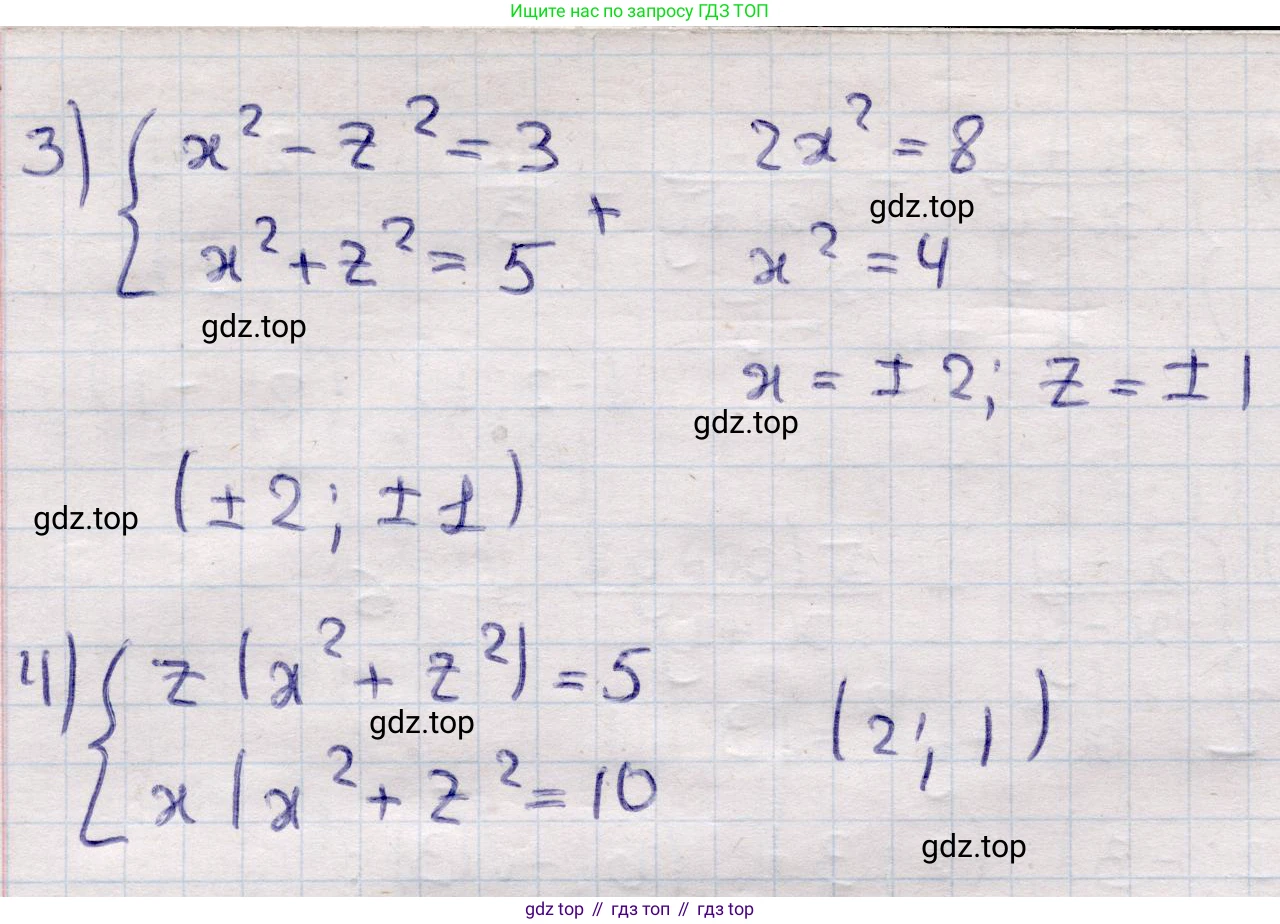 Ищите нас по запросу ГДЗ ТОП
3) { x² - z² = 3
x² + z² = 5 +
2x² = 8
gdz.top
x² = 4
gdz.top
x = ± 2; z = ± 1
gdz.top
gdz.top
(± 2; ± 1)
4) { z (x² + z²) = 5
gdz.top
x (x² + z² = 10
(2; 1)
gdz.top
gdz top // гдз топ // гдз top